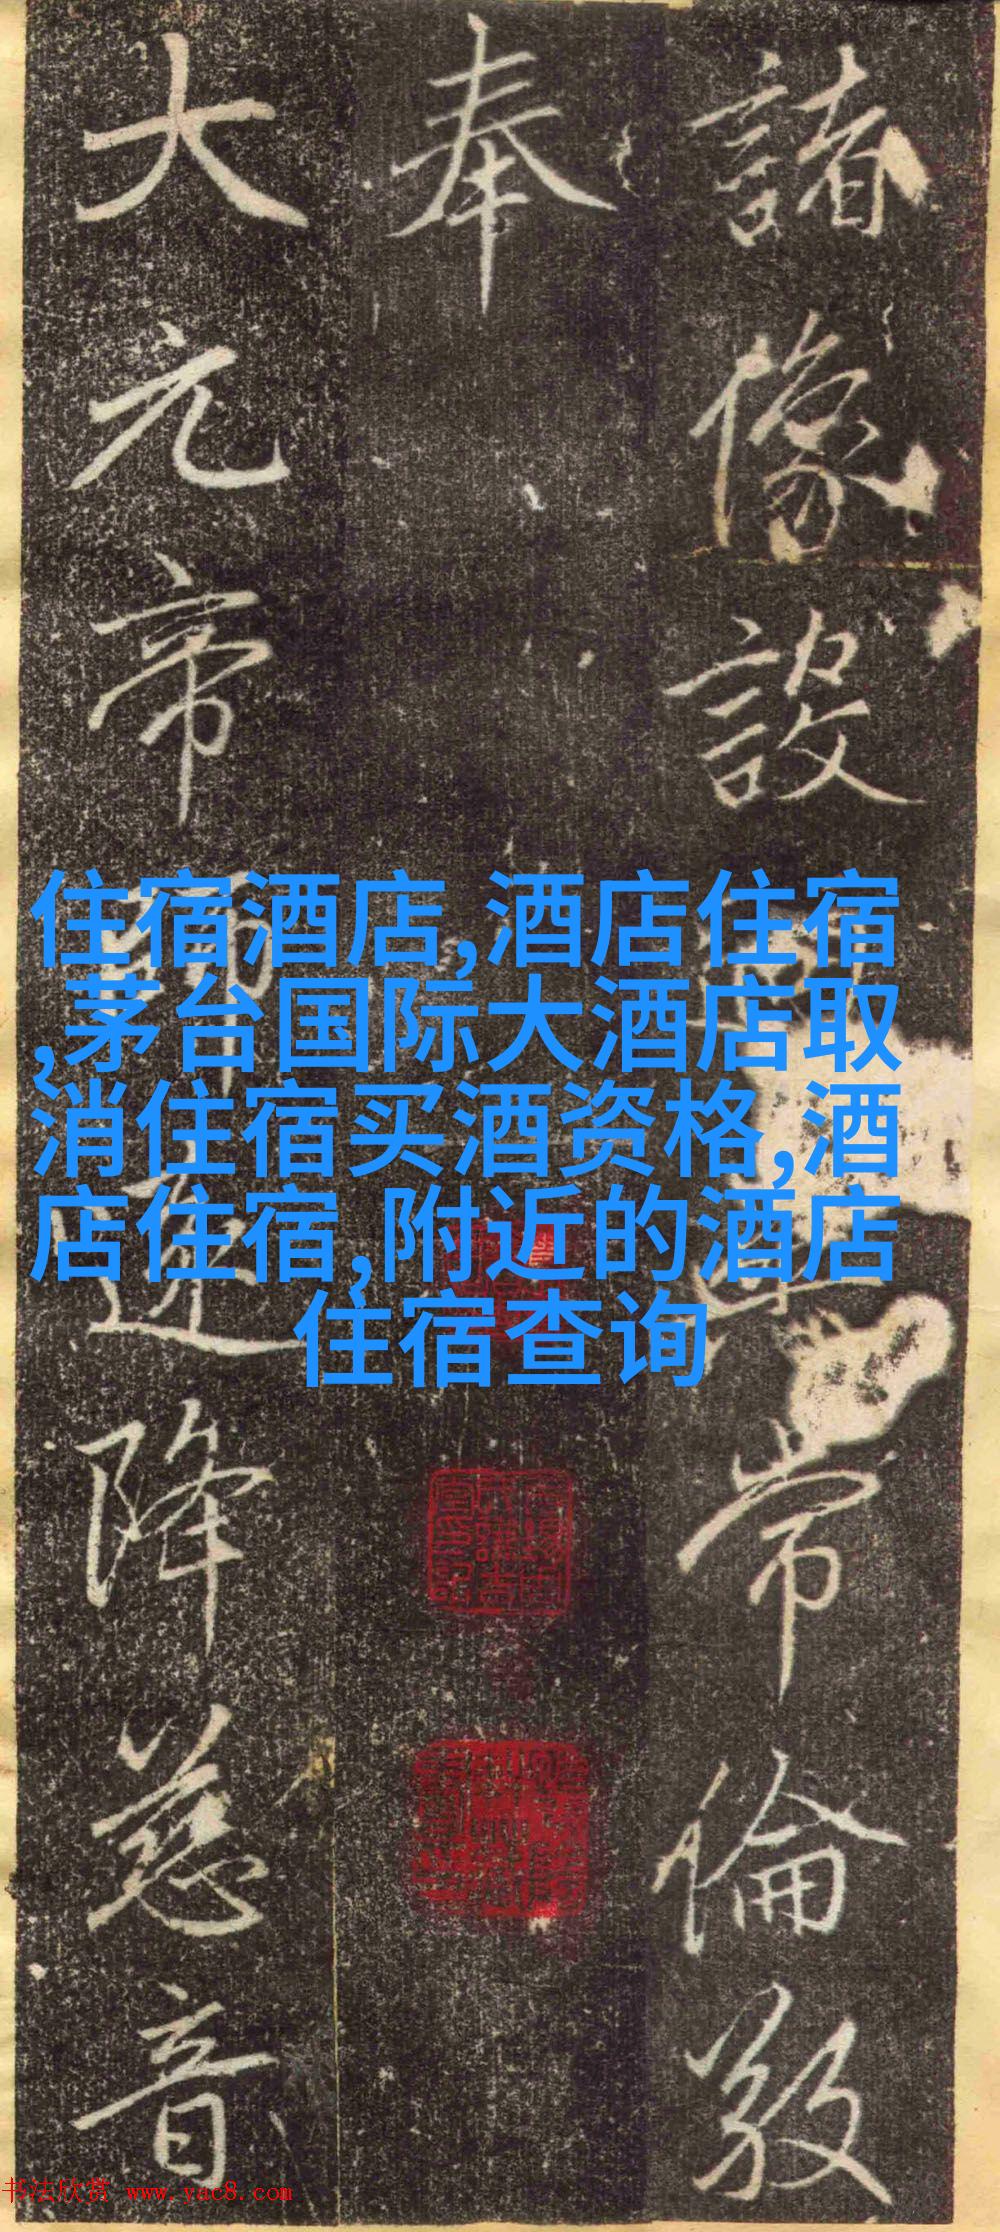 諸像設
常倫敬
奉
大元帝
降慈音
住宿酒店,酒店住宿
,茅台国际大酒店取
消住宿买酒资格,酒
店住宿,附近的酒店
住宿查询
书法欣赏 www.yac8.com